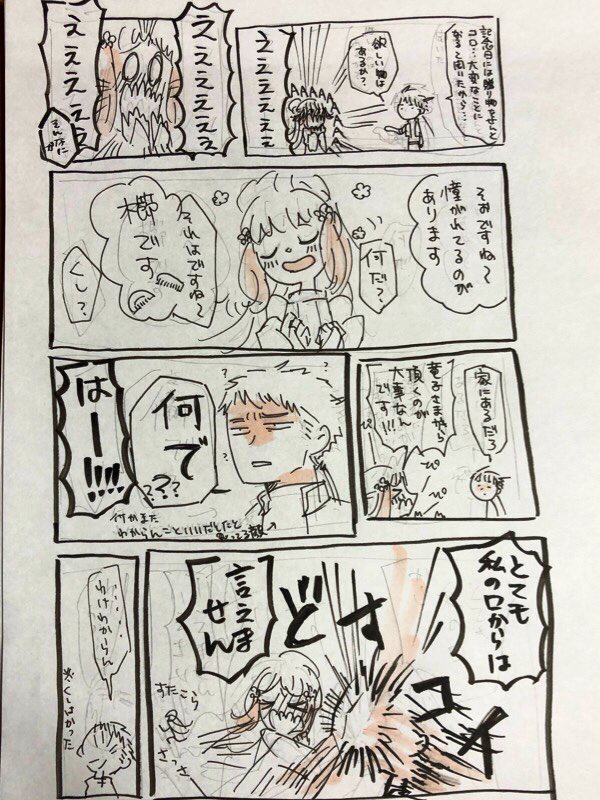 記念日には贈り物をせんと
コロ…大変なことに
なると聞いたから…
欲しい物は
あるか?
えええええぇ
えええええぇ
えええええぇ
そんなに
か
そおですね〜
憧がれてるのが
あります
何だ?
それはですね〜
櫛です
くし?
家にあるだろ
頂くのが
大事なん
です!!!
ぴ
ぴ
何で
???
はー!!!!
何がまた
わからんこと
とても
私の口からは
言えま
せん
どすコイ
すたこら
さっさ
……
わけわからん
※くしはかった